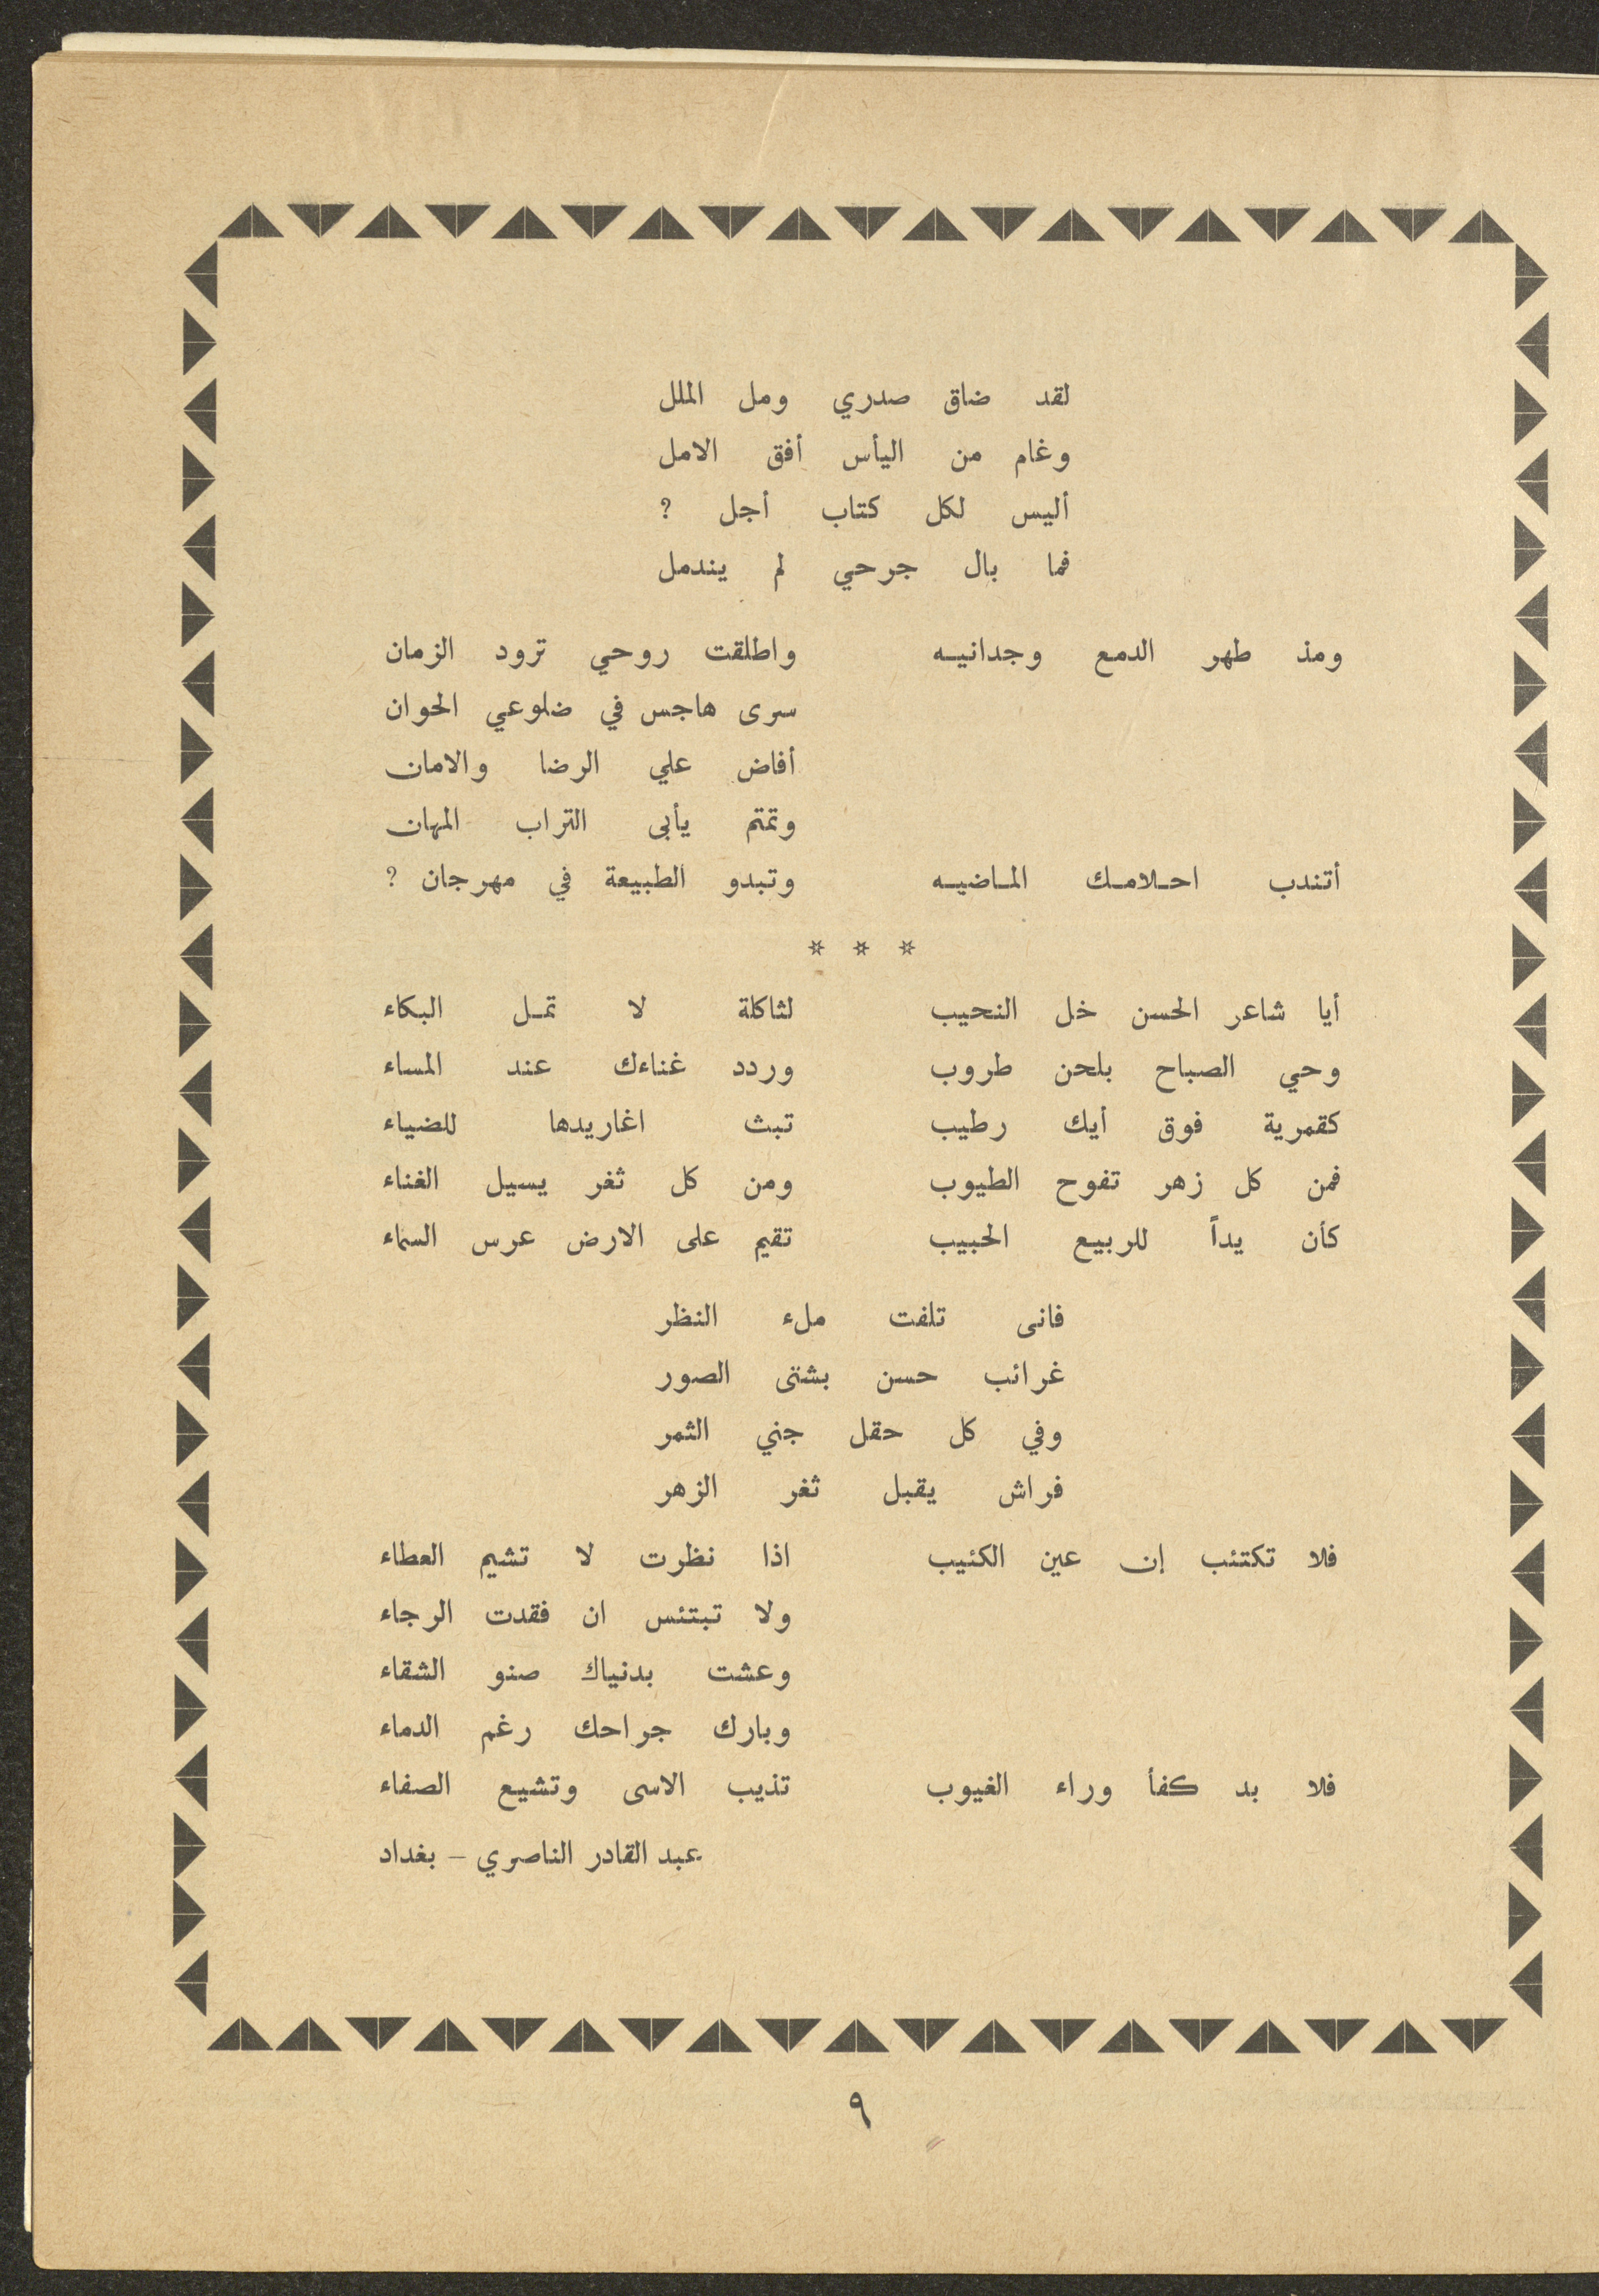 لقد ضاق صدري ومل الملل
وغام من اليأس أفق الامل
أليس لكل كتاب أجل ؟
فما بال جرحي لم يندمل
ومذ طهر الدمع وجدانيه واطلقت روحي ترود الزمان
سرى هاجس في ضلوعي الحوان
أفاض علي الرضا والامان
وتمتم يأبى التراب المهان
أتندب احلامك الماضيه وتبدو الطبيعة في مهرجان ؟
* * *
أيا شاعر الحسن خل النحيب لثاكلة لا تمل البكاء
وحي الصباح بلحن طروب وردد غناءك عند المساء
كقمرية فوق أيك رطيب تبث اغاريدها للضياء
فمن كل زهر تفوح الطيوب ومن كل ثغر يسيل الغناء
كأن يداً للربيع الحبيب تقيم على الارض عرس السماء
فانى تلفت ملء النظر
غرائب حسن بشتى الصور
وفي كل حقل جني الثمر
فراش يقبل ثغر الزهر
فلا تكتئب إن عين الكئيب اذا نظرت لا تشيم العطاء
ولا تبتئس ان فقدت الرجاء
وعشت بدنياك صنو الشقاء
وبارك جراحك رغم الدماء
فلا بد كفأ وراء الغيوب تذيب الاسى وتشيع الصفاء
عبد القادر الناصري – بغداد
٩